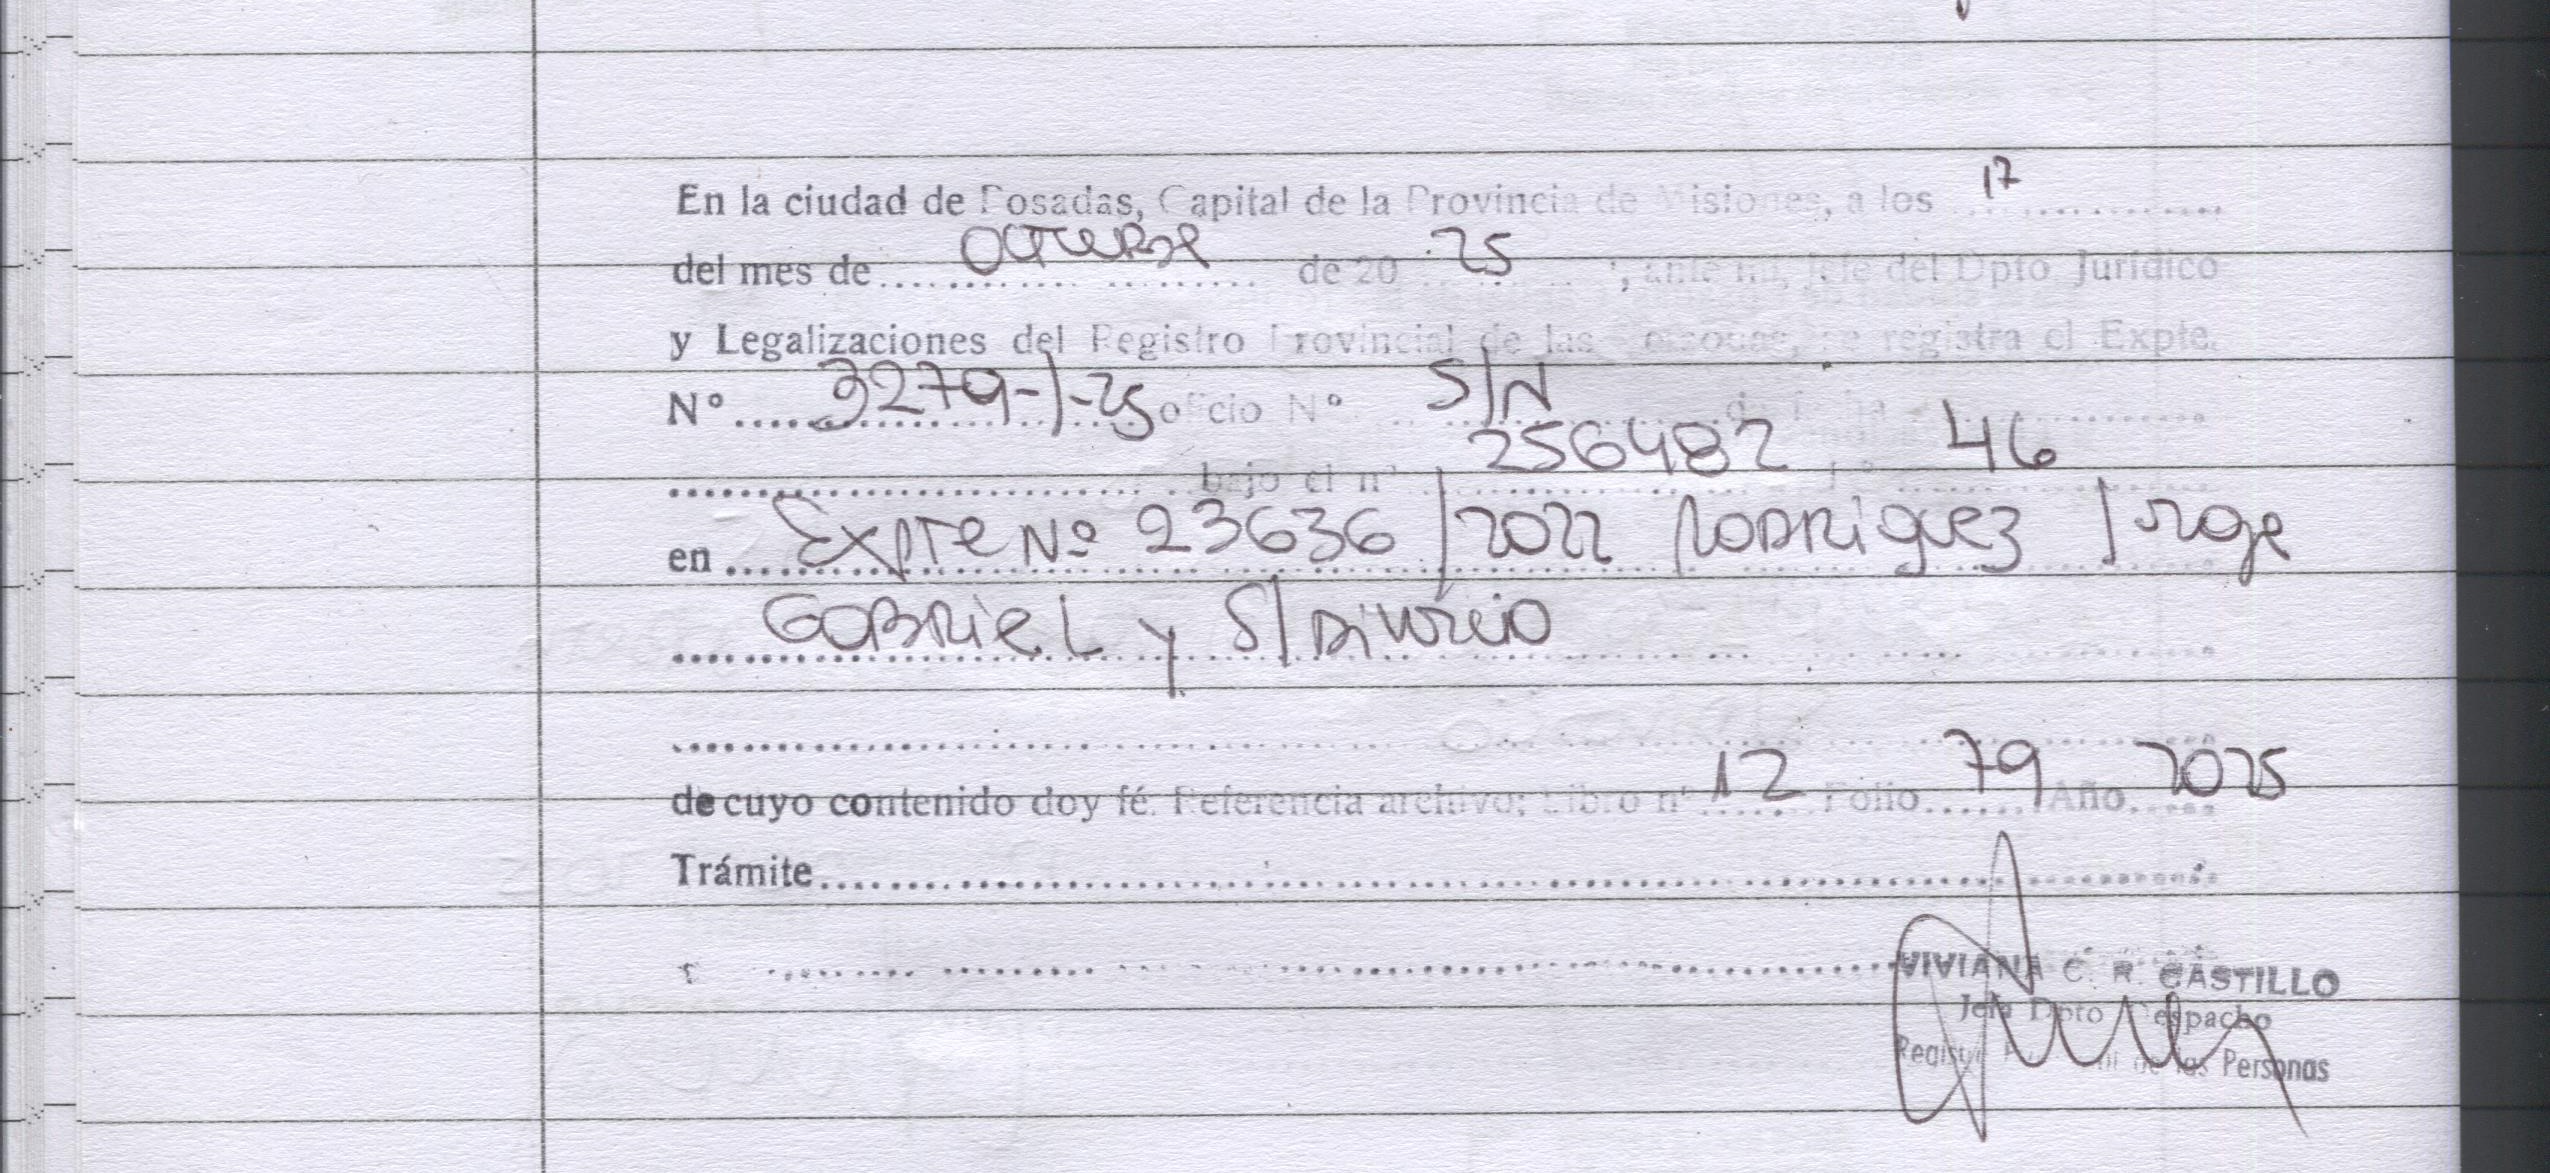 En la ciudad de Posadas, Capital de la Provincia de Misiones, a los 17
del mes de octubre de 2025, ante mi, Jefe del Dpto Jurídico
y Legalizaciones del Registro Provincial de las Personas, se registra el Expte.
Nº 3279-J-25 oficio Nº S/N
bajo el nº 256482 Fº 46
en Expte Nº 23636/2022 Rodriguez Jorge
Gabriel y S/Divorcio
de cuyo contenido doy fé. Referencia archivo: Libro nº 12 Folio 79 Año 2025
Trámite
VIVIANA C. R. CASTILLO
Jefa Dpto Despacho
Registro Provincial de las Personas